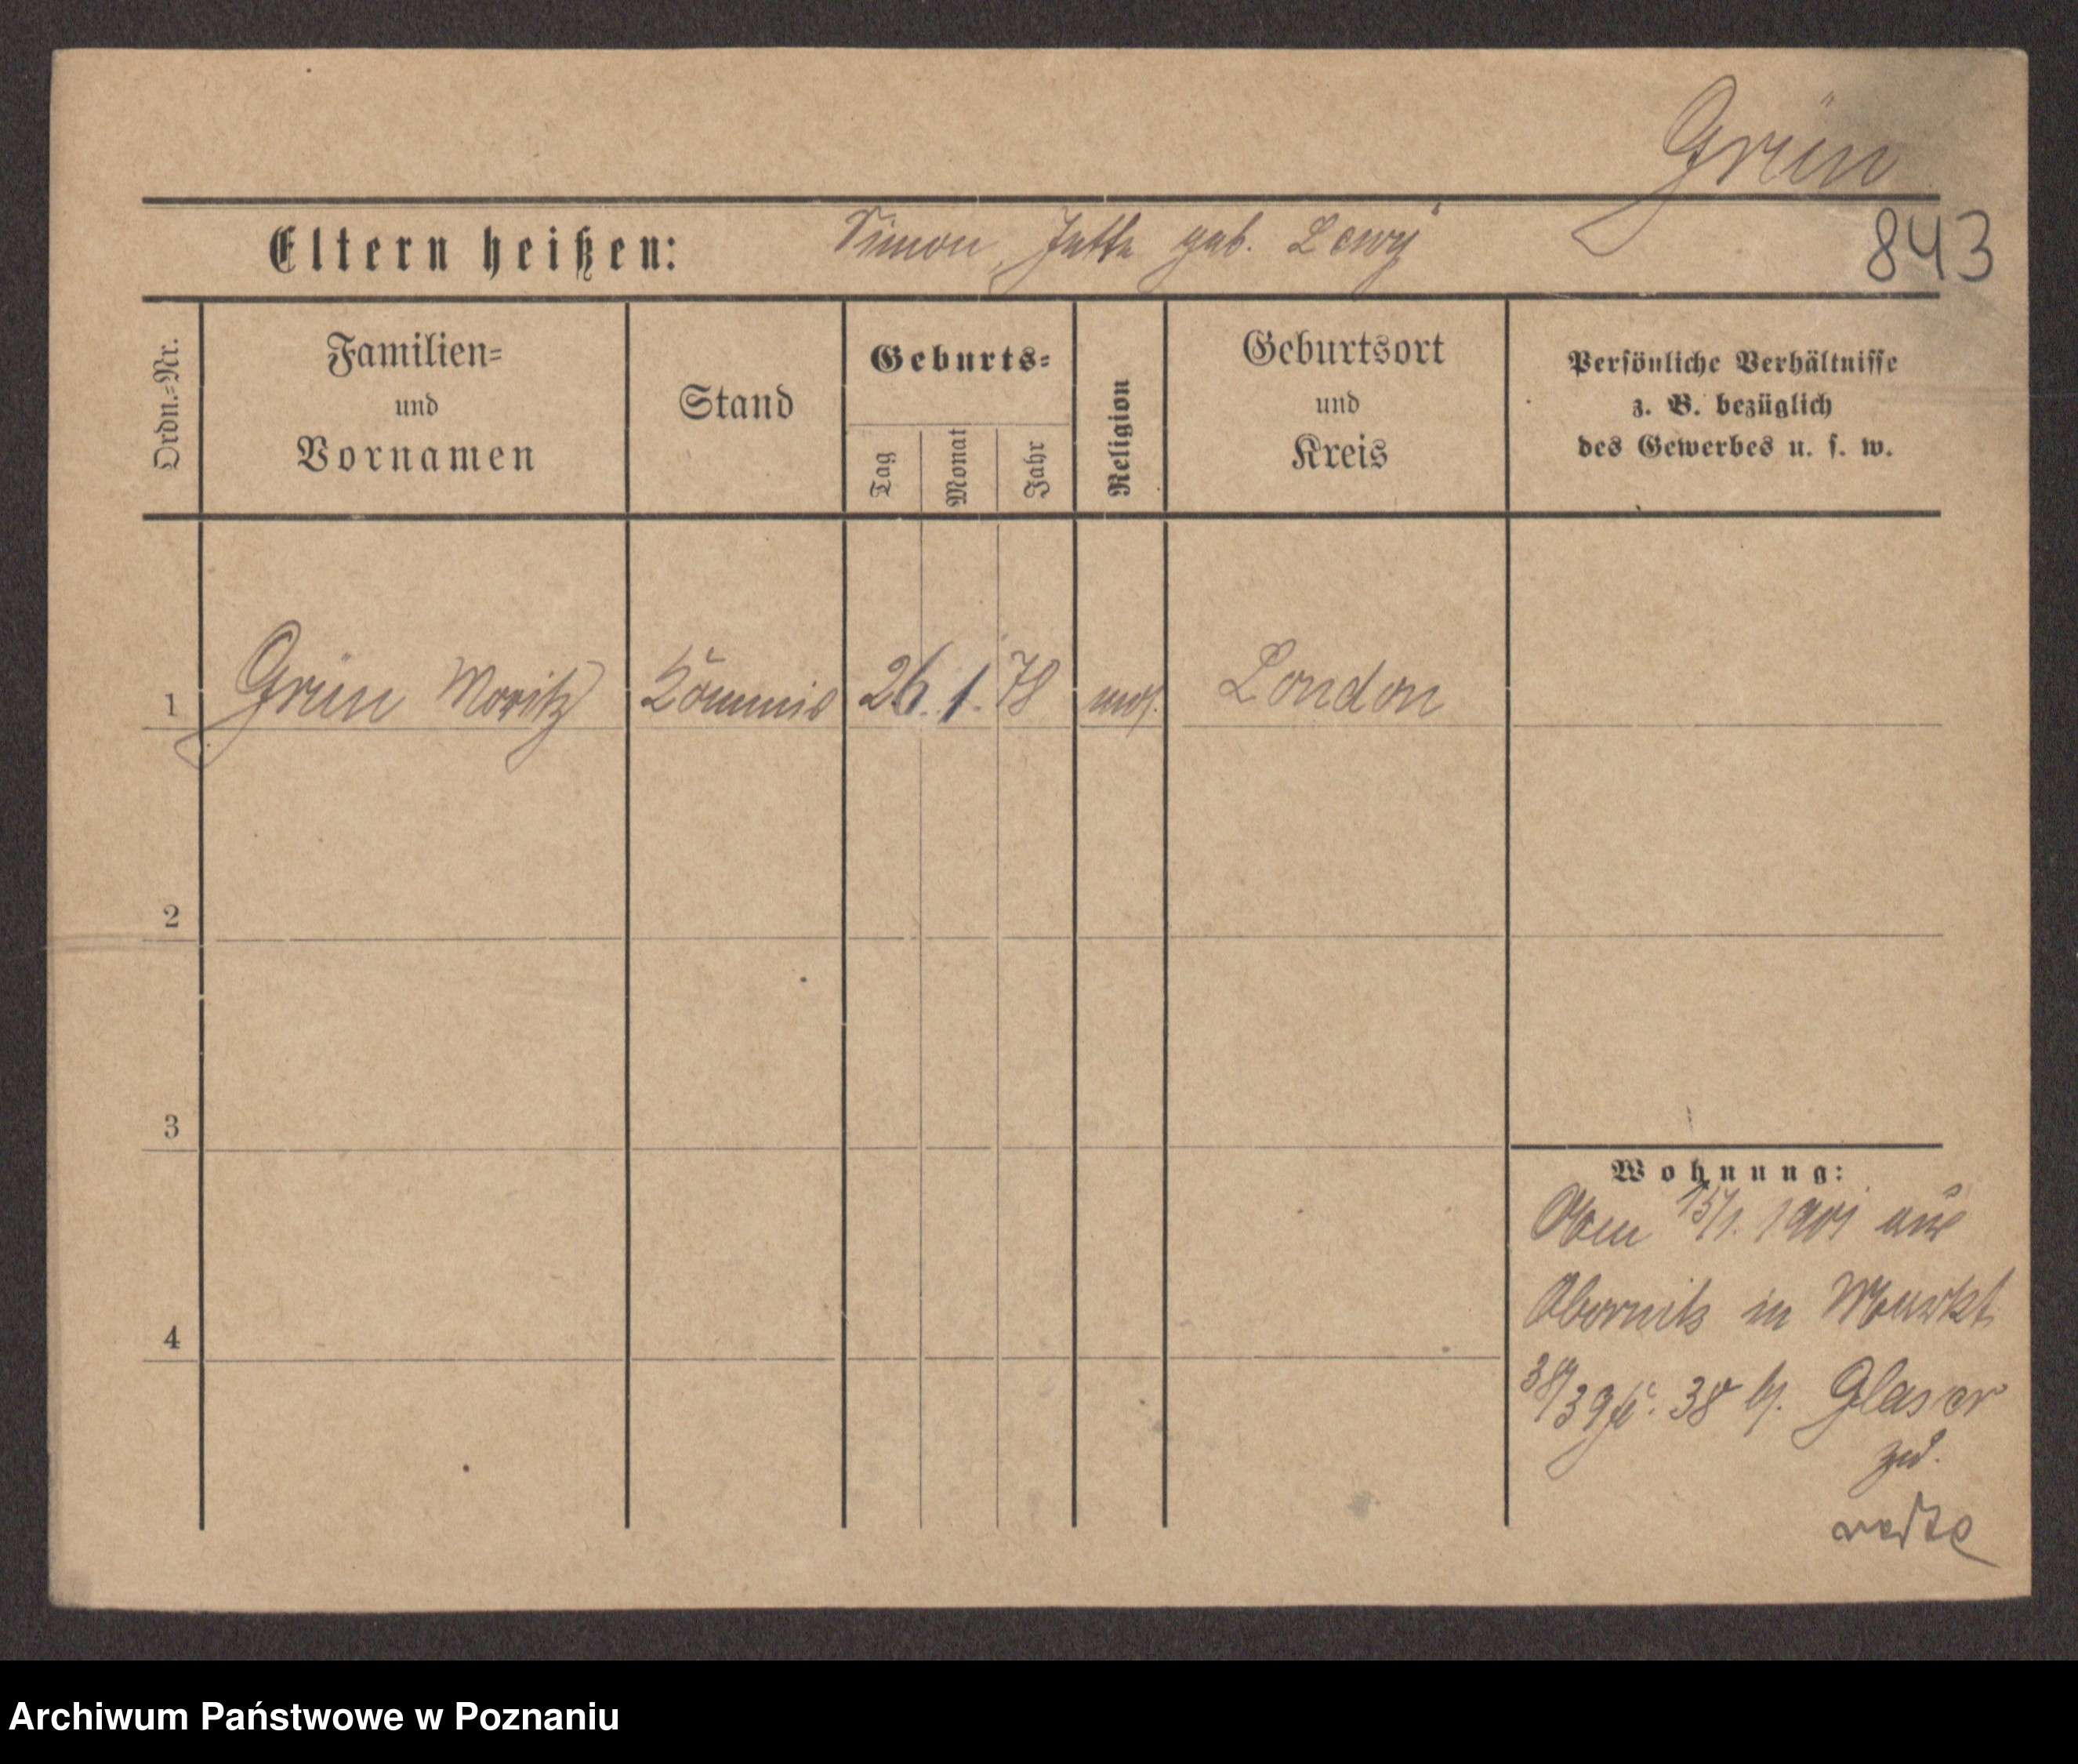 Grün
Eltern heißen: Simon, Jette geb. Lewy
843
Ordn.=Nr.
Familien=
und
Vornamen
Stand
Geburts=
Tag
Monat
Jahr
Religion
Geburtsort
und
Kreis
Persönliche Verhältnisse
z. B. bezüglich
des Gewerbes u. s. w.
1 Grün Moritz Kommis 26. 1. 78 mos. London
2
3
4
Wohnung:
15/1. 1901 aus
Obornik in Markt
38/39 38 b. Glaser
Archiwum Państwowe w Poznaniu